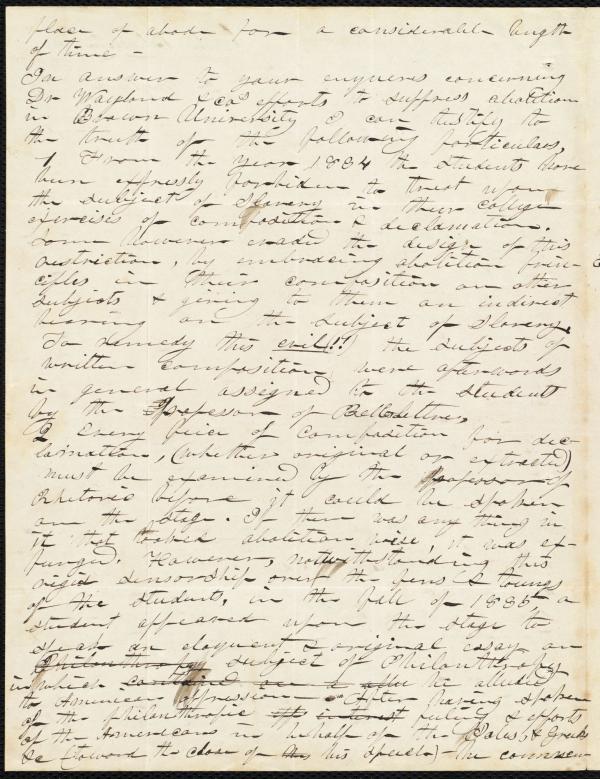 place of abode for a considerable length
of time -
In answer to your enqueres concerning
Dr Wayland & co's efforts to suppress abolition
in Brown University I can testify to
the truth of the following particulars,
1 From the year 1834 the students have
been expressly forbiden to treat upon
the subject of Slavery in their college
exercises of composition & declamation.
Some however evaded the design of this
restriction, by embracing abolition prin-
ciples in their composition on other
subjects & giving to them an indirect
bearing on the subject of Slavery.
To remedy this evil!! the subjects of
written composition were afterwords
in general assigned to the students
by the Professor of Belles lettres,
2 Every peice of composition for dec-
lamation, (whether original or extracted)
must be examined by the Professor of
Rhetoric before it could be spoken
on the stage. If there was any thing in
it that looked abolition wise, it was ex-
punged. However, notwithstanding this
rigid sensorship over the pens & toungs
of the students, in the fall of 1835 a
student appeared upon the stage to
speak an eloquent & original essay on
Philanthropy subject of Philanthropy
in which contained over & after he alluded
to American oppression - After having spoken
of the philanthropic feeling & efforts
of the Americans in behalf of the Poles, & Greeks
&c (toward the close of this speech) - he commen-